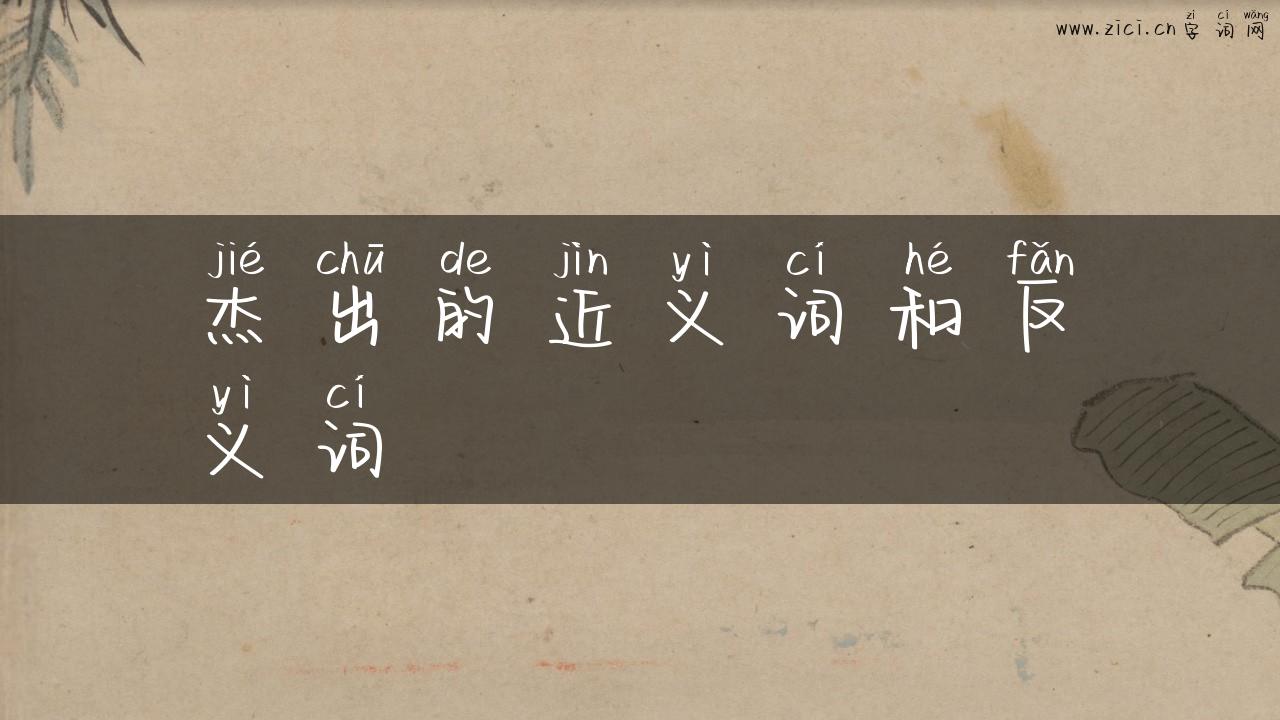 zì cí wǎng
www.zici.cn 字词网
jié chū de jìn yì cí hé fǎn
杰出的近义词和反
yì cí
义词